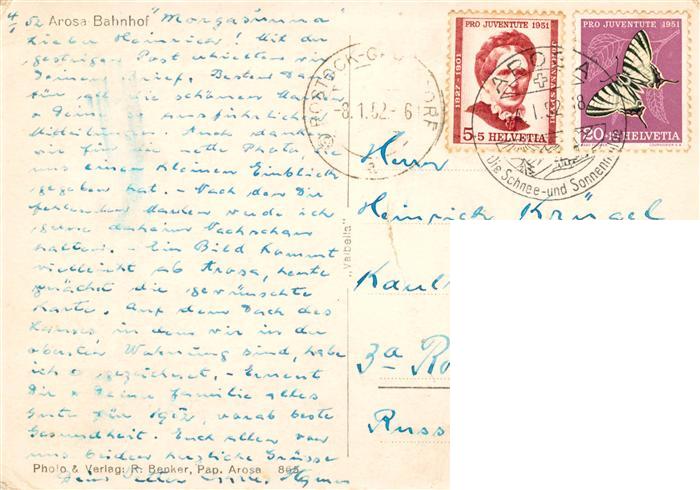 4/1
52 Arosa Bahnhof "Morgasunna"
Lieber Heinrich! Mit der
gestrigen Post erhielten wir
Deinen Brief. Besten Dank
für all die schönen
& Deine ausführlich
Mitteilungen. Auch danken
wir für die nette Photo,
uns einen kleinen Einblick
gegeben hat. - Nach den Dir
fehlenden Marken werde ich
gerne daheim Nachschau
halten. - Ein Bild kommt
vielleicht ab Arosa, heute
zunächst die gewünschte
Karte. Auf dem Dach des
Hauses, in dem wir in der
obersten Wohnung sind, habe
ich gezeichnet. - Ernent
Dir & Deine Familie alles
Gute für 1952, vorab beste
Gesundheit. Euch allen von
uns beiden herzliche Grüsse
Dein
Photo & Verlag: R. Benker, Pap. Arosa 865
"Valbella"
-8.1.52.-6
PRO JUVENTUTE 1951
1827-1901
JOHANNA SPYRI
5+5 HELVETIA
PRO JUVENTUTE 1951
20+ HELVETIA
AROSA
Die Schnee-und Sonnen
Herrn
Heinrich Krügel
Karl
3a Ro
Russ